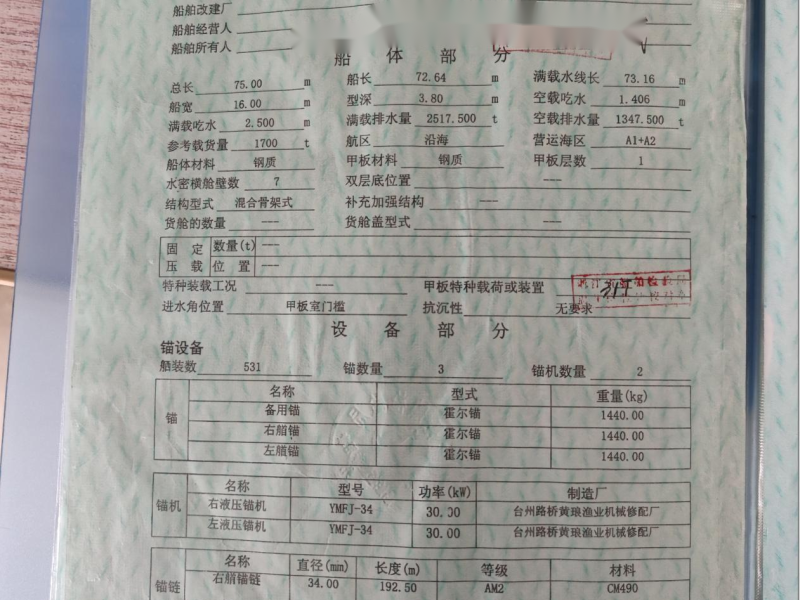 船舶改建厂
船舶经营人
船舶所有人
船 体 部 分
总长 75.00 m 船长 72.64 m 满载水线长 73.16 m
船宽 16.00 m 型深 3.80 m 空载吃水 1.406 m
满载吃水 2.500 m 满载排水量 2517.500 t 空载排水量 1347.500 t
参考载货量 1700 t 航区 沿海 营运海区 A1+A2
船体材料 钢质 甲板材料 钢质 甲板层数 1
水密横舱壁数 7 双层底位置 ---
结构型式 混合骨架式 补充加强结构 ---
货舱的数量 --- 货舱盖型式 ---
固 定 数量(t) ---
压 载 位 置 ---
特种装载工况 --- 甲板特种载荷或装置
进水角位置 甲板室门槛 抗沉性 无要求
设 备 部 分
锚设备
舾装数 531 锚数量 3 锚机数量 2
锚 名称 型式 重量(kg)
备用锚 霍尔锚 1440.00
右艏锚 霍尔锚 1440.00
左艏锚 霍尔锚 1440.00
锚机 名称 型号 功率(kW) 制造厂
右液压锚机 YMFJ-34 30.00 台州路桥黄琅渔业机械修配厂
左液压锚机 YMFJ-34 30.00 台州路桥黄琅渔业机械修配厂
锚链 名称 直径(mm) 长度(m) 等级 材料
右艏锚链 34.00 192.50 AM2 CM490